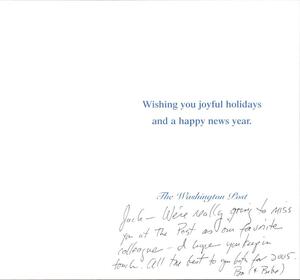 Wishing you joyful holidays
and a happy news year.
The Washington Post
Jack – We're really going to MISS
you at The Post as our favorite
colleague – I hope you keep in
touch. All the best to you both for 2005.
Bo (+ Bebe)